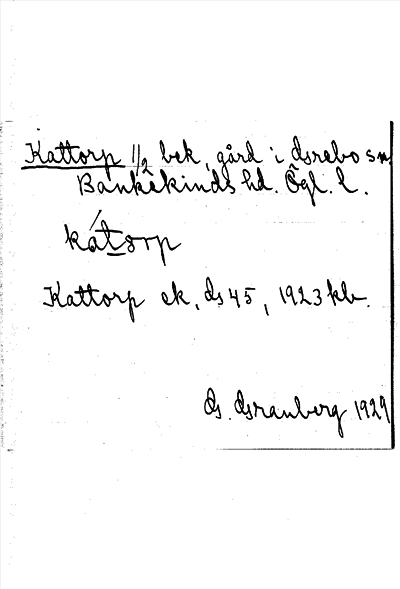 Kattorp 1 1/2 bek, gård i Grebo sn
Bankekinds hd. Ögl. l.
kátorp
Kattorp ek, G 45, 1923 kb.
G. Granberg 1929